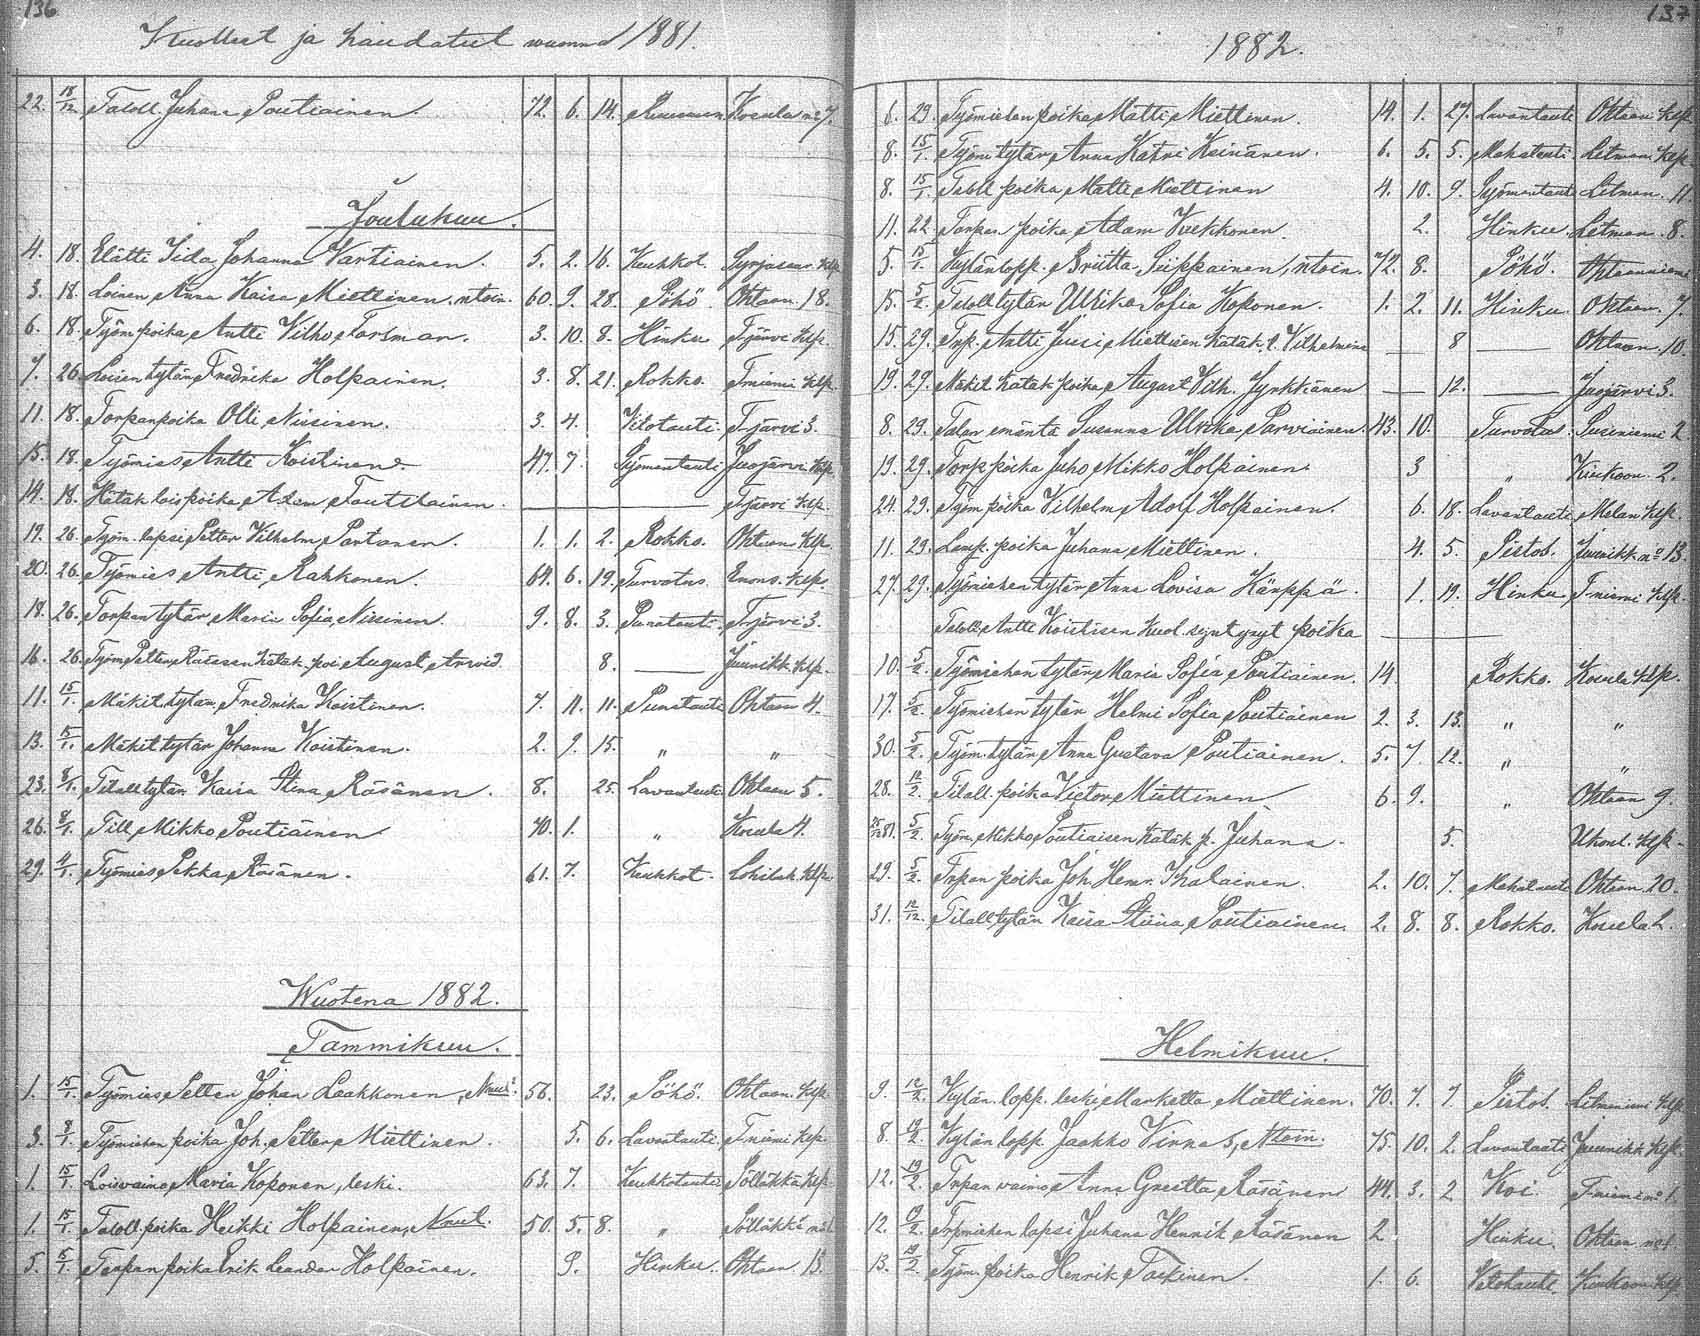 136
Kuolleet ja haudatut wuonna 1881.
22. 18/12. Taloll. Juhana Poutiainen. 72. 6. 14. Kosula no 7.
Joulukuu.
4. 18. Elätti Iida Johanna Vartiainen. 5. 2. 16. Keuhkot. klp
3. 18. Loinen Anna Kaisa Miettinen, ntoin. 60. 9. 28. Pöhö. Ohtaan. 18.
6. 18. Työm. poika Antti Vilho Forsman. 3. 10. 8. Hinku T.järvi klp.
7. 26. Loisen tytär Fredrika Holpainen. 3. 8. 21. Rokko. T.niemi klp.
11. 18. Torpan poika Olli Niisinen. 3. 4. Vilotauti. T-järvi 3.
15. 18. Työmies Antti Koistinen. 47. 7. Syömätauti Juojärvi klp.
14. 18. Kätäk. lois poika Adam Tautiainen. T.järvi klp.
19. 26. Työm. lapsi Petter Vilhelm Partanen. 1. 1. 2. Rokko. Ohtaan klp.
20. 26. Työmies Antti Rahkonen. 64. 6. 19. Turvotus. Enons. klp.
18. 26. Torpan tytär Maria Sofia Niisinen. 9. 8. 3. Punatauti. T-järvi 3.
16. 26. Työm. Petter Räsäsen kätäk. poi August Arvid. 8. Juurikk. klp.
11. 15/1. Mäkit. tytär Fredrika Koistinen. 7. 11. 11. Punatauti Ohtaan 4.
13. 15/1. Mäkit. tytär Johanna Koistinen. 2. 9. 15. " "
23. 8/1. Tilall. tytär Kaisa Stina Räsänen. 8. 25. Lavantauti Ohtaan 5.
26. 8/1. Till. Mikko Poutiainen 70. 1. " Kosula 4.
29. 4/1. Työmies Pekka Räsänen. 61. 7. Keuhkot. klp.
Wuotena 1882.
Tammikuu.
1. 15/1. Työmies Petter Johan Laakkonen, 56. 23. Pöhö. Ohtaan. klp
3. 8/1. Työmiehen poika Joh. Petter Miettinen. 5. 6. Lavantauti. T.niemi klp.
1. 15/1. Loisvaimo Maria Koponen, leski. 63. 7. Keuhkotauti Pölläkkä klp
1. 15/1. Taloll. poika Heikki Holpainen, 50. 5. 8. " Pölläkkä no 1
5. 15/1. Torpan poika Erik Leander Holpainen. 9. Hinku. Ohtaan 13.
137
1882.
6. 29. Työmiehen poika Matti Miettinen. 14. 1. 27. Lavantauti Ohtaan klp.
8. 15/1. Työm. tytär Anna Katri Keinänen. 6. 5. 5. Mahatauti. Litman. klp.
8. 15/1. Taloll. poika Matti Miettinen 4. 10. 9. Syömentauti Litman. 11.
11. 22. Torpan poika Adam Kukkonen. 2. Hinku. Litman. 8.
5. 15/1. Kylänlopp. Briitta Siippainen, ntoin. 72. 8. Pöhö.
15. 5/2. Tilall. tytär Ulrika Sofia Koponen. 1. 2. 11. Hinku. Ohtaan. 7.
15. 29. Trp. Antti Juusi Miettisen kätäk. t. Vilhelmina 8 Ohtaan. 10.
19. 29. Mäkit. kätäk. poika August Vilh. Jyrkkänen 12. Juojärvi 3.
8. 29. Talon emäntä Susanna Ulrika Parviainen. 43. 10. Turvotus. Suseniemi 2
19. 29. Torp. poika Juho Mikko Holpainen. 3 " 2.
24. 29. Työm. poika Vilhelm Adolf Holpainen. 6. 18. Lavantauti Melan klp.
11. 29. Lamp. poika Juhana Miettinen. 4. 5. Pistos. Juurikk. no 13.
27. 29. Työmiehen tytär Anna Lovisa Kärppä. 1. 19. Hinku T-niemi klp.
Taloll. Antti Koistisen kuol. syntynyt poika
10. 5/2. Työmiehen tytär Maria Sofia Poutiainen. 14 Rokko. Kosula klp.
17. 5/2. Työmiehen tytär Helmi Sofia Poutiainen 2. 3. 13. " "
30. 5/2. Työm. tytär Anna Gustava Poutiainen. 5. 7. 12. " "
28. 12/2. Tilall. poika Victor Miettinen. 6. 9. " Ohtaan 9.
5/2. Työm. Mikko Poutiaisen kätäk p. Juhana. 5. klp.
29. 5/2. Trpan poika Joh. Henr. Ikalainen. 2. 10. 7. Mahatauti Ohtaan. 20.
31. 12/12. Tilall. tytär Kaisa Stiina Poutiainen. 2. 8. 8. Rokko. Kosula 2.
Helmikuu.
9. 12/2. Kylän lopp. leski Marketta Miettinen. 70. 7. 7. Pistos. Litmaniemi klp.
8. 19/2. Kylän lopp. Jaakko Vinnas, Ntoin. 75. 10. 2. Lavantauti Juurikk. klp.
12. 19/2. Trpan vaimo Anna Greetta Räsänen 44. 3. 2 Koi. T-niemi no 1.
12. 19/2. Trpmiehen lapsi Juhana Henrik Räsänen 2 Hinku. Ohtaan no 1.
13. 19/2. Työm. poika Henrik Taskinen. 1. 6. Vetotauti. klp.